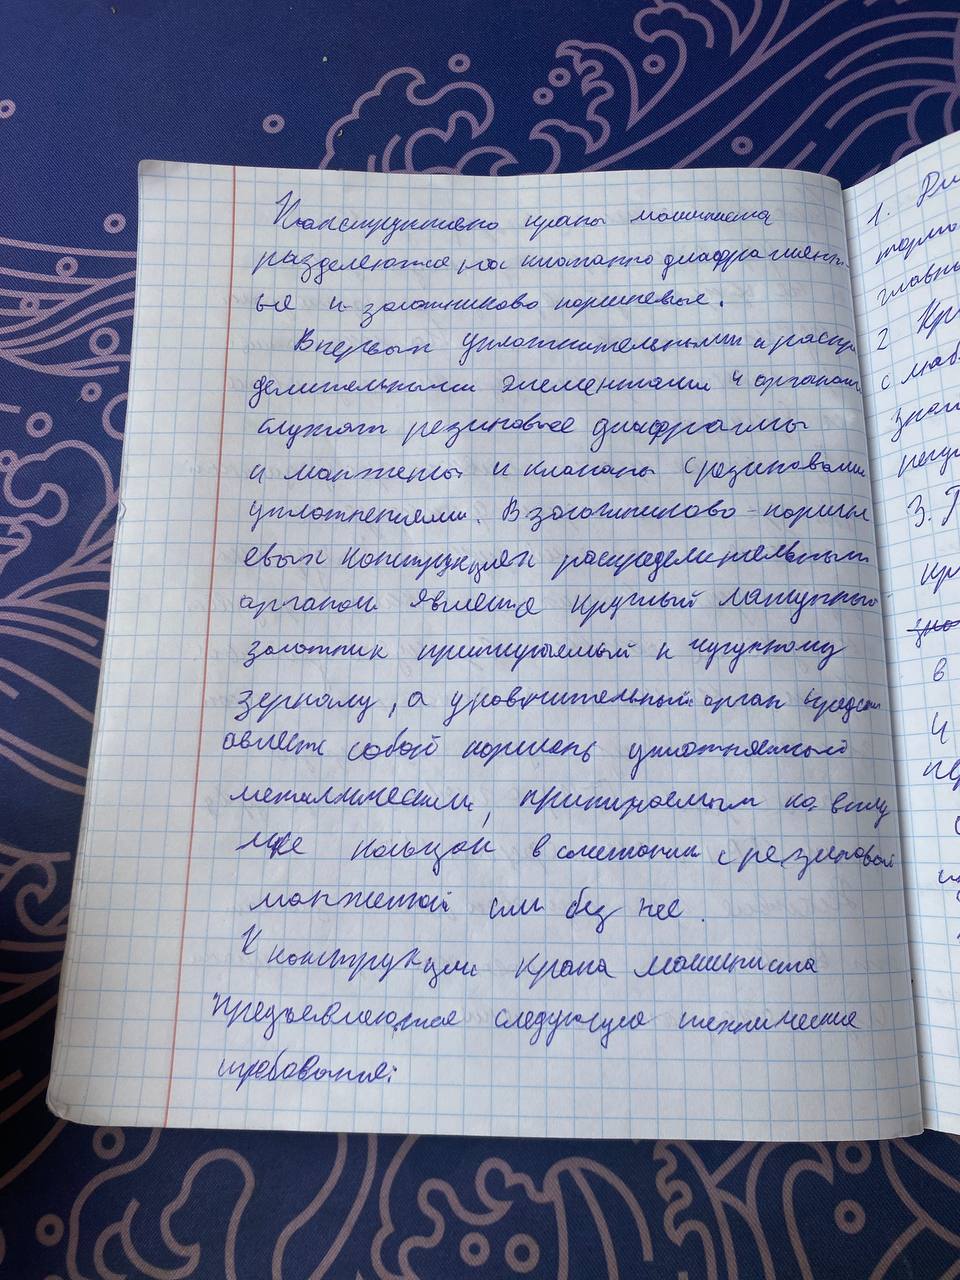 Конструктивно краны машиниста
разделяются на клапанно диафрагменн-
ые и золотниково поршневые.
Впервых уплотнительными и распре
делительными элементами и органами
служат резиновые диафрагмы
и манжеты и клапаны с резиновыми
уплотнениями. В золотниково-поршн
евых конструкциях распределительным
органом является круглый латунный
золотник притираемый к чугунному
зеркалу, а уравнительный орган представ
авляет собой поршень уплотняемый
металлическим, притираемым ко втул
ке кольцом в сочетании с резиновой
манжетой или без нее.
К конструкции крана машиниста
предъявляются следующие технические
требования:
1.
тормо
главны
2 Кр
с люб
знач
регул
3.
кр
в
4
пе